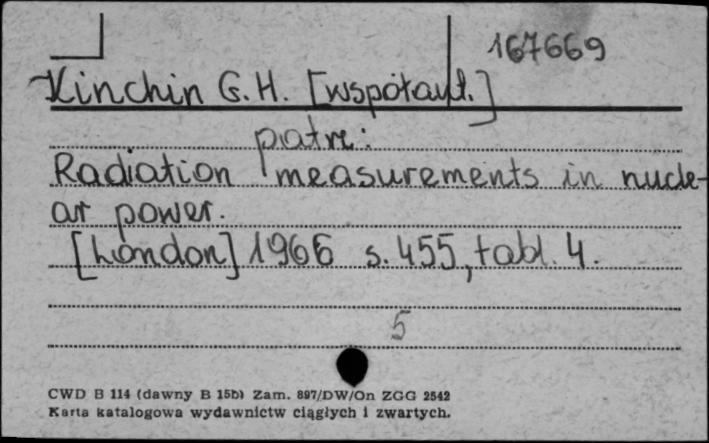 167669
Kinchin G.H. [współaut.]
patrz:
Radiation measurements in nucle-
ar power.
[London] 1966 s. 455, tabl. 4.
5
CWD B 114 (dawny B 15b) Zam. 897/DW/On ZGG 2542
Karta katalogowa wydawnictw ciągłych i zwartych.